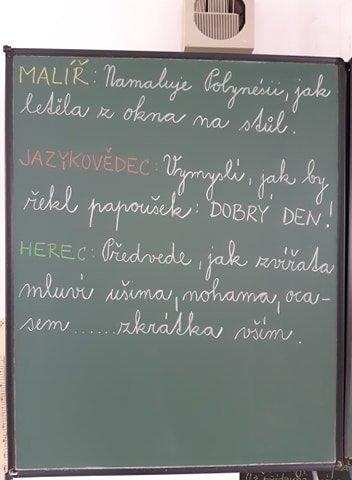 MALÍŘ: Namaluje Polynésii, jak
letěla z okna na stůl.
JAZYKOVĚDEC: Vymyslí, jak by
řekl papoušek: DOBRÝ DEN!
HEREC: Předvede, jak zvířata
mluví ušima, nohama, oca-
sem......zkrátka vším.